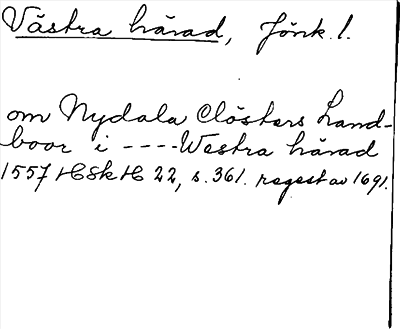 Västra härad, Jönk. l.
om Nydala Clösters Land-
boor i ----Westra härad
1557 HSkH 22, s. 361. regest av 1691.